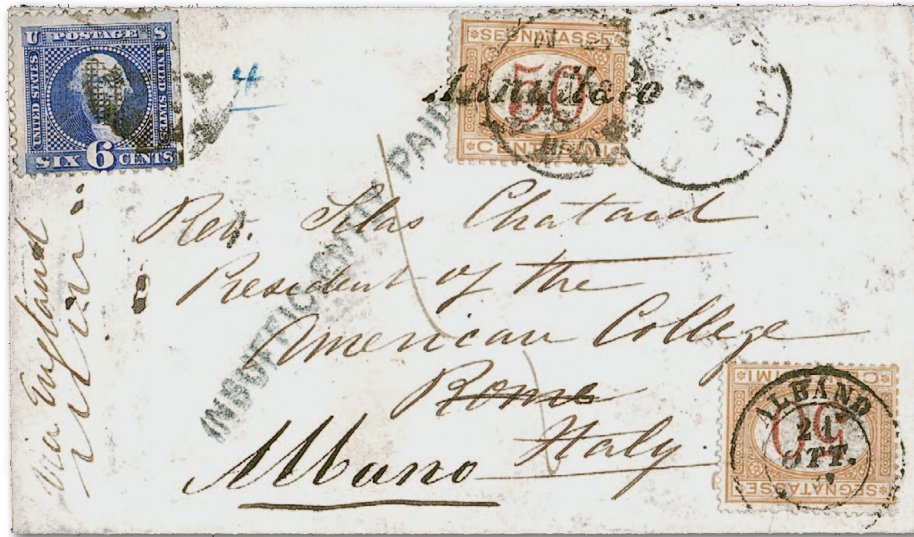 U POSTAGE S
UNITED STATES
UNITED STATES
SIX 6 CENTS
4
SEGNATASSE
50
CENTESIMI
Annullato
N.Y.
INSUFFICIENTLY PAID
via England
Rev. Silas Chatard
President of the
American College
Rome
Italy.
Albano
SEGNATASSE
50
CENTESIMI
ALBANO
21
OTT.